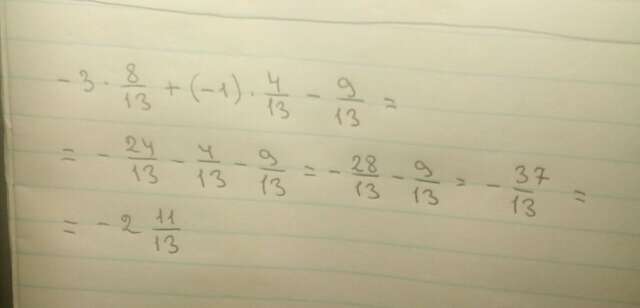 -3 · 8/13 + (-1) · 4/13 - 9/13 =
= - 24/13 - 4/13 - 9/13 = - 28/13 - 9/13 = - 37/13 =
= - 2 11/13